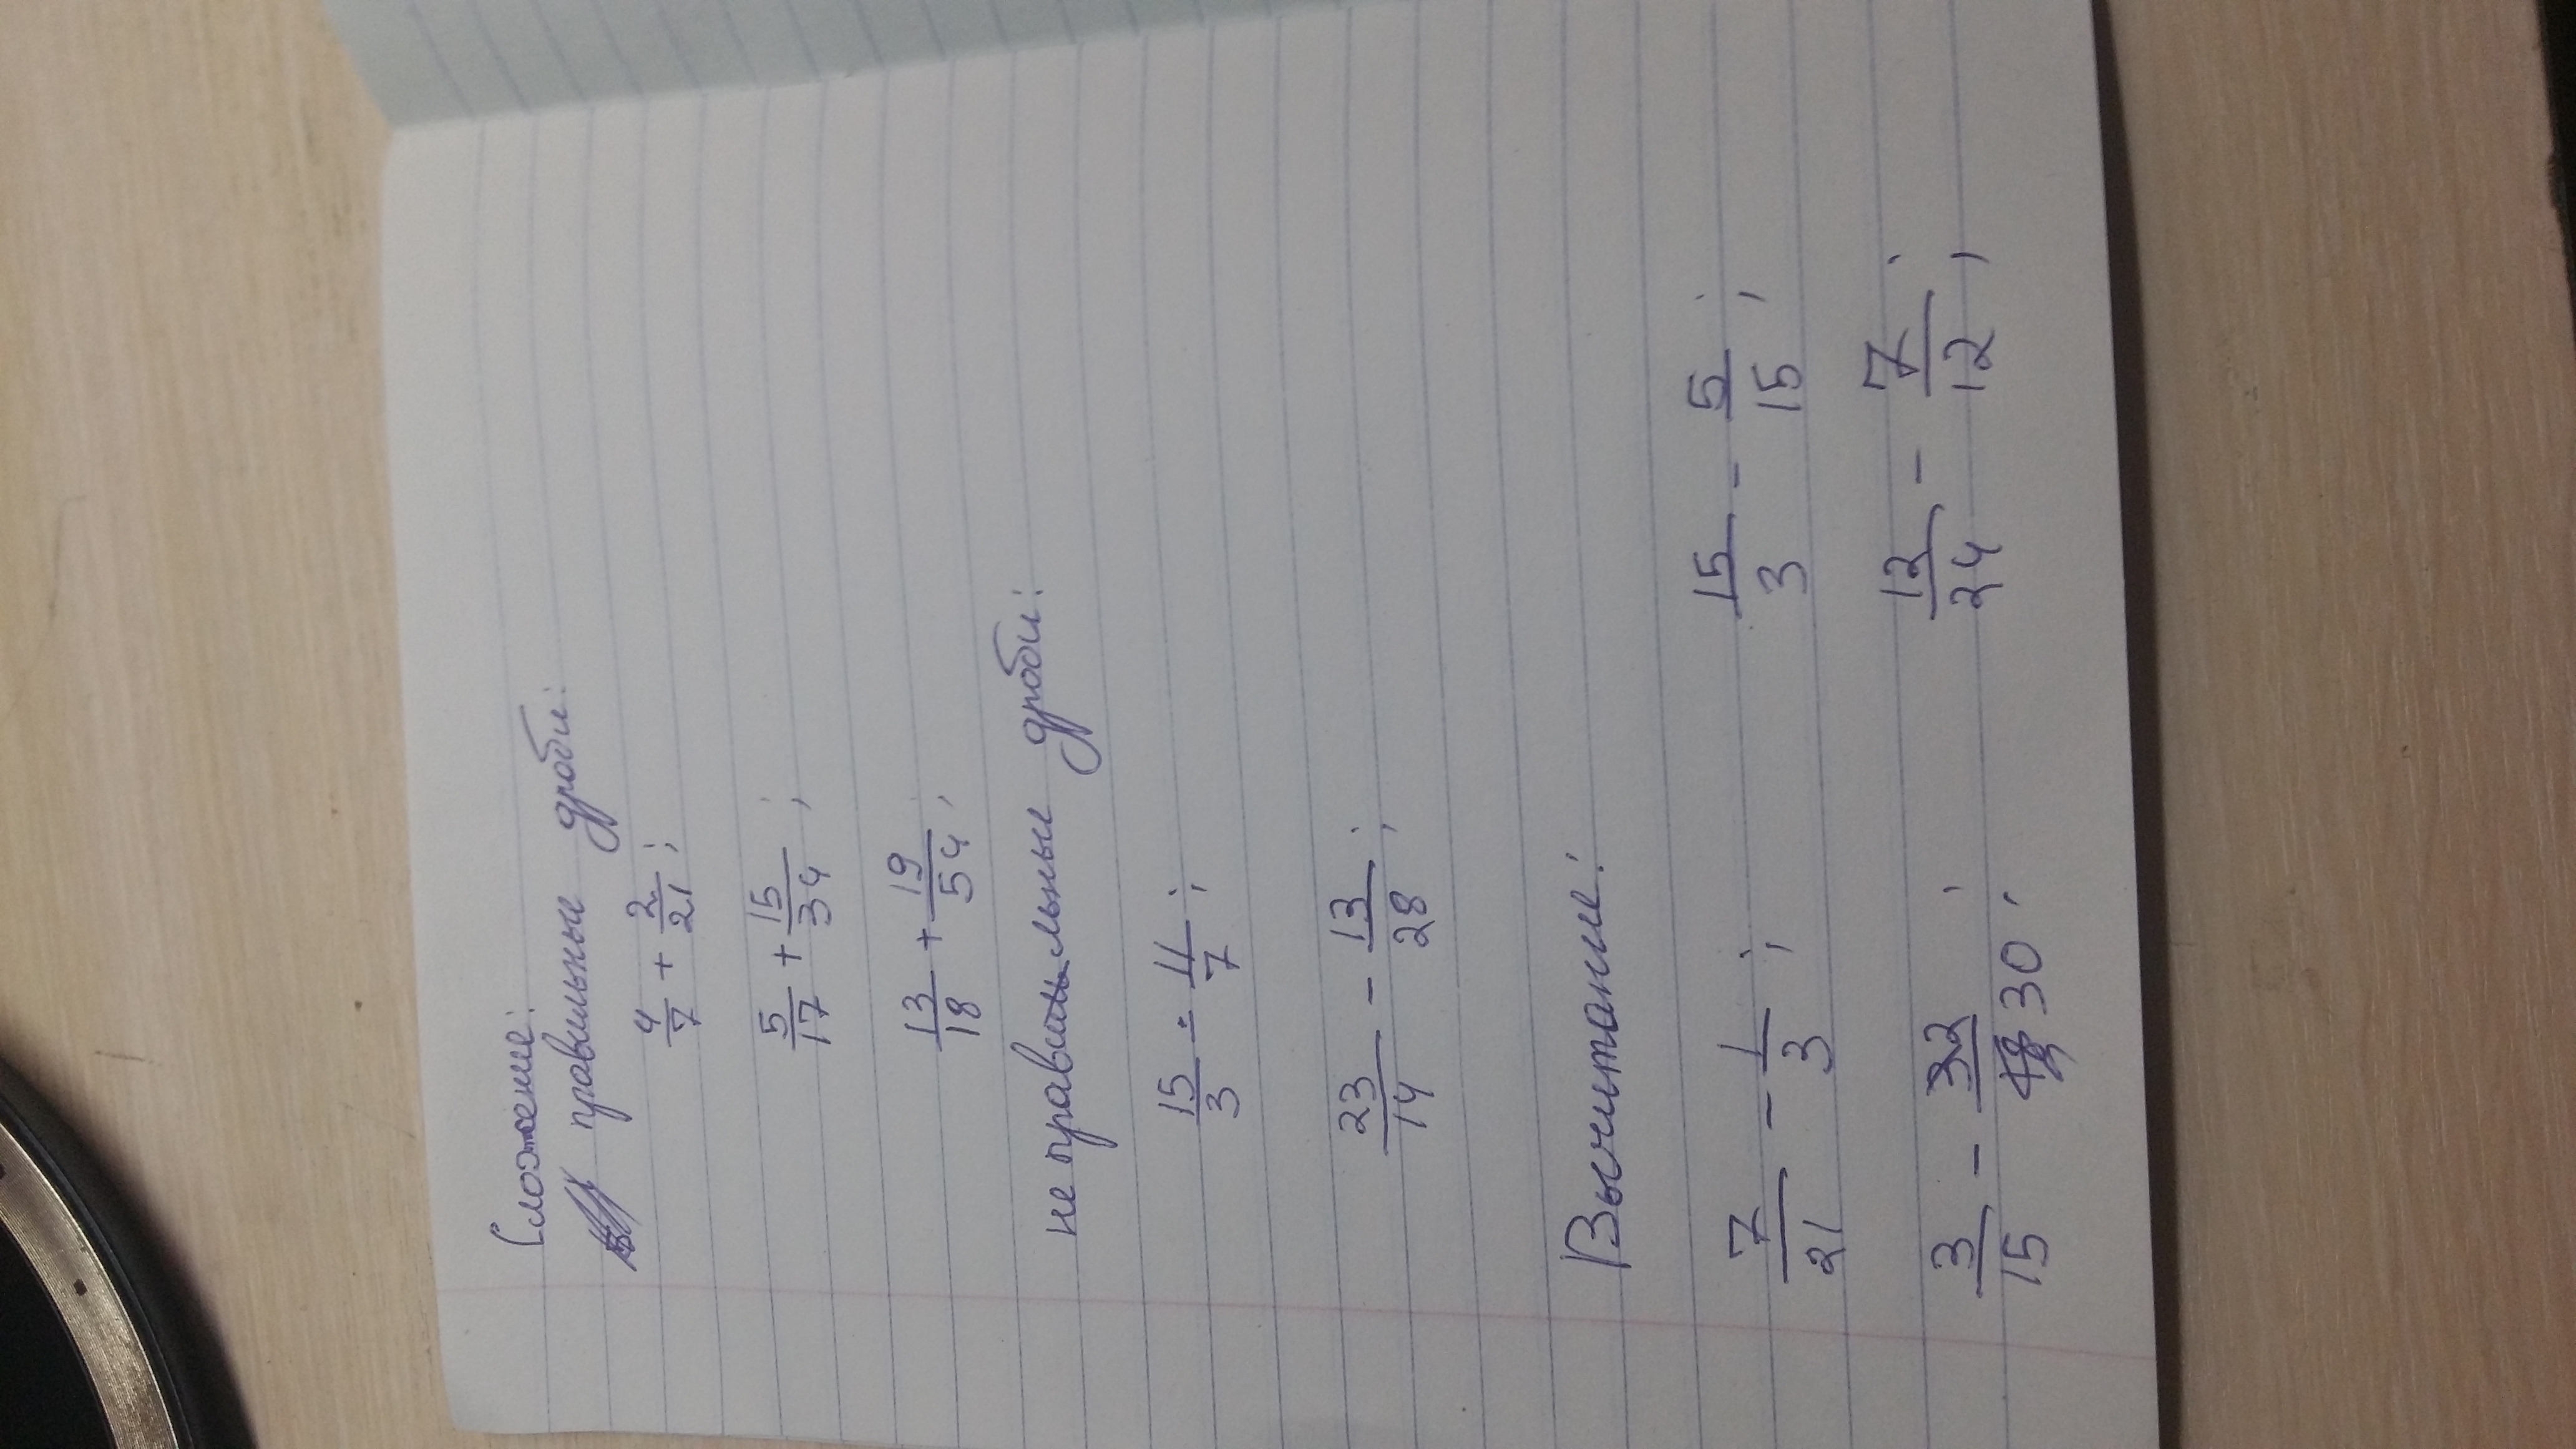 Сложение:
правильные дроби:
4/7 + 2/21;
5/17 + 15/34;
13/18 + 19/54;
не правильные дроби:
15/3 - 11/7;
23/14 - 13/28;
Вычитание:
7/21 - 1/3; 15/3 - 5/15;
3/15 - 32/30; 12/24 - 7/12;